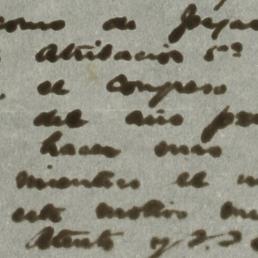 como de
Atribucion 5ª
el Congreso
del año
haces mas
mientras el
este motivo
Atento y S. S.